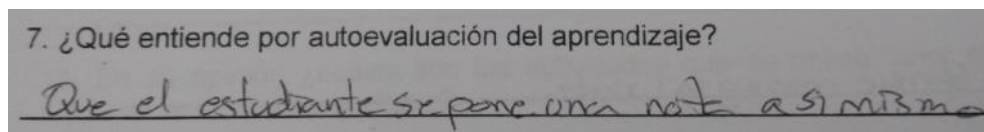 7. ¿Qué entiende por autoevaluación del aprendizaje?
Que el estudiante se pone una nota a si mismo